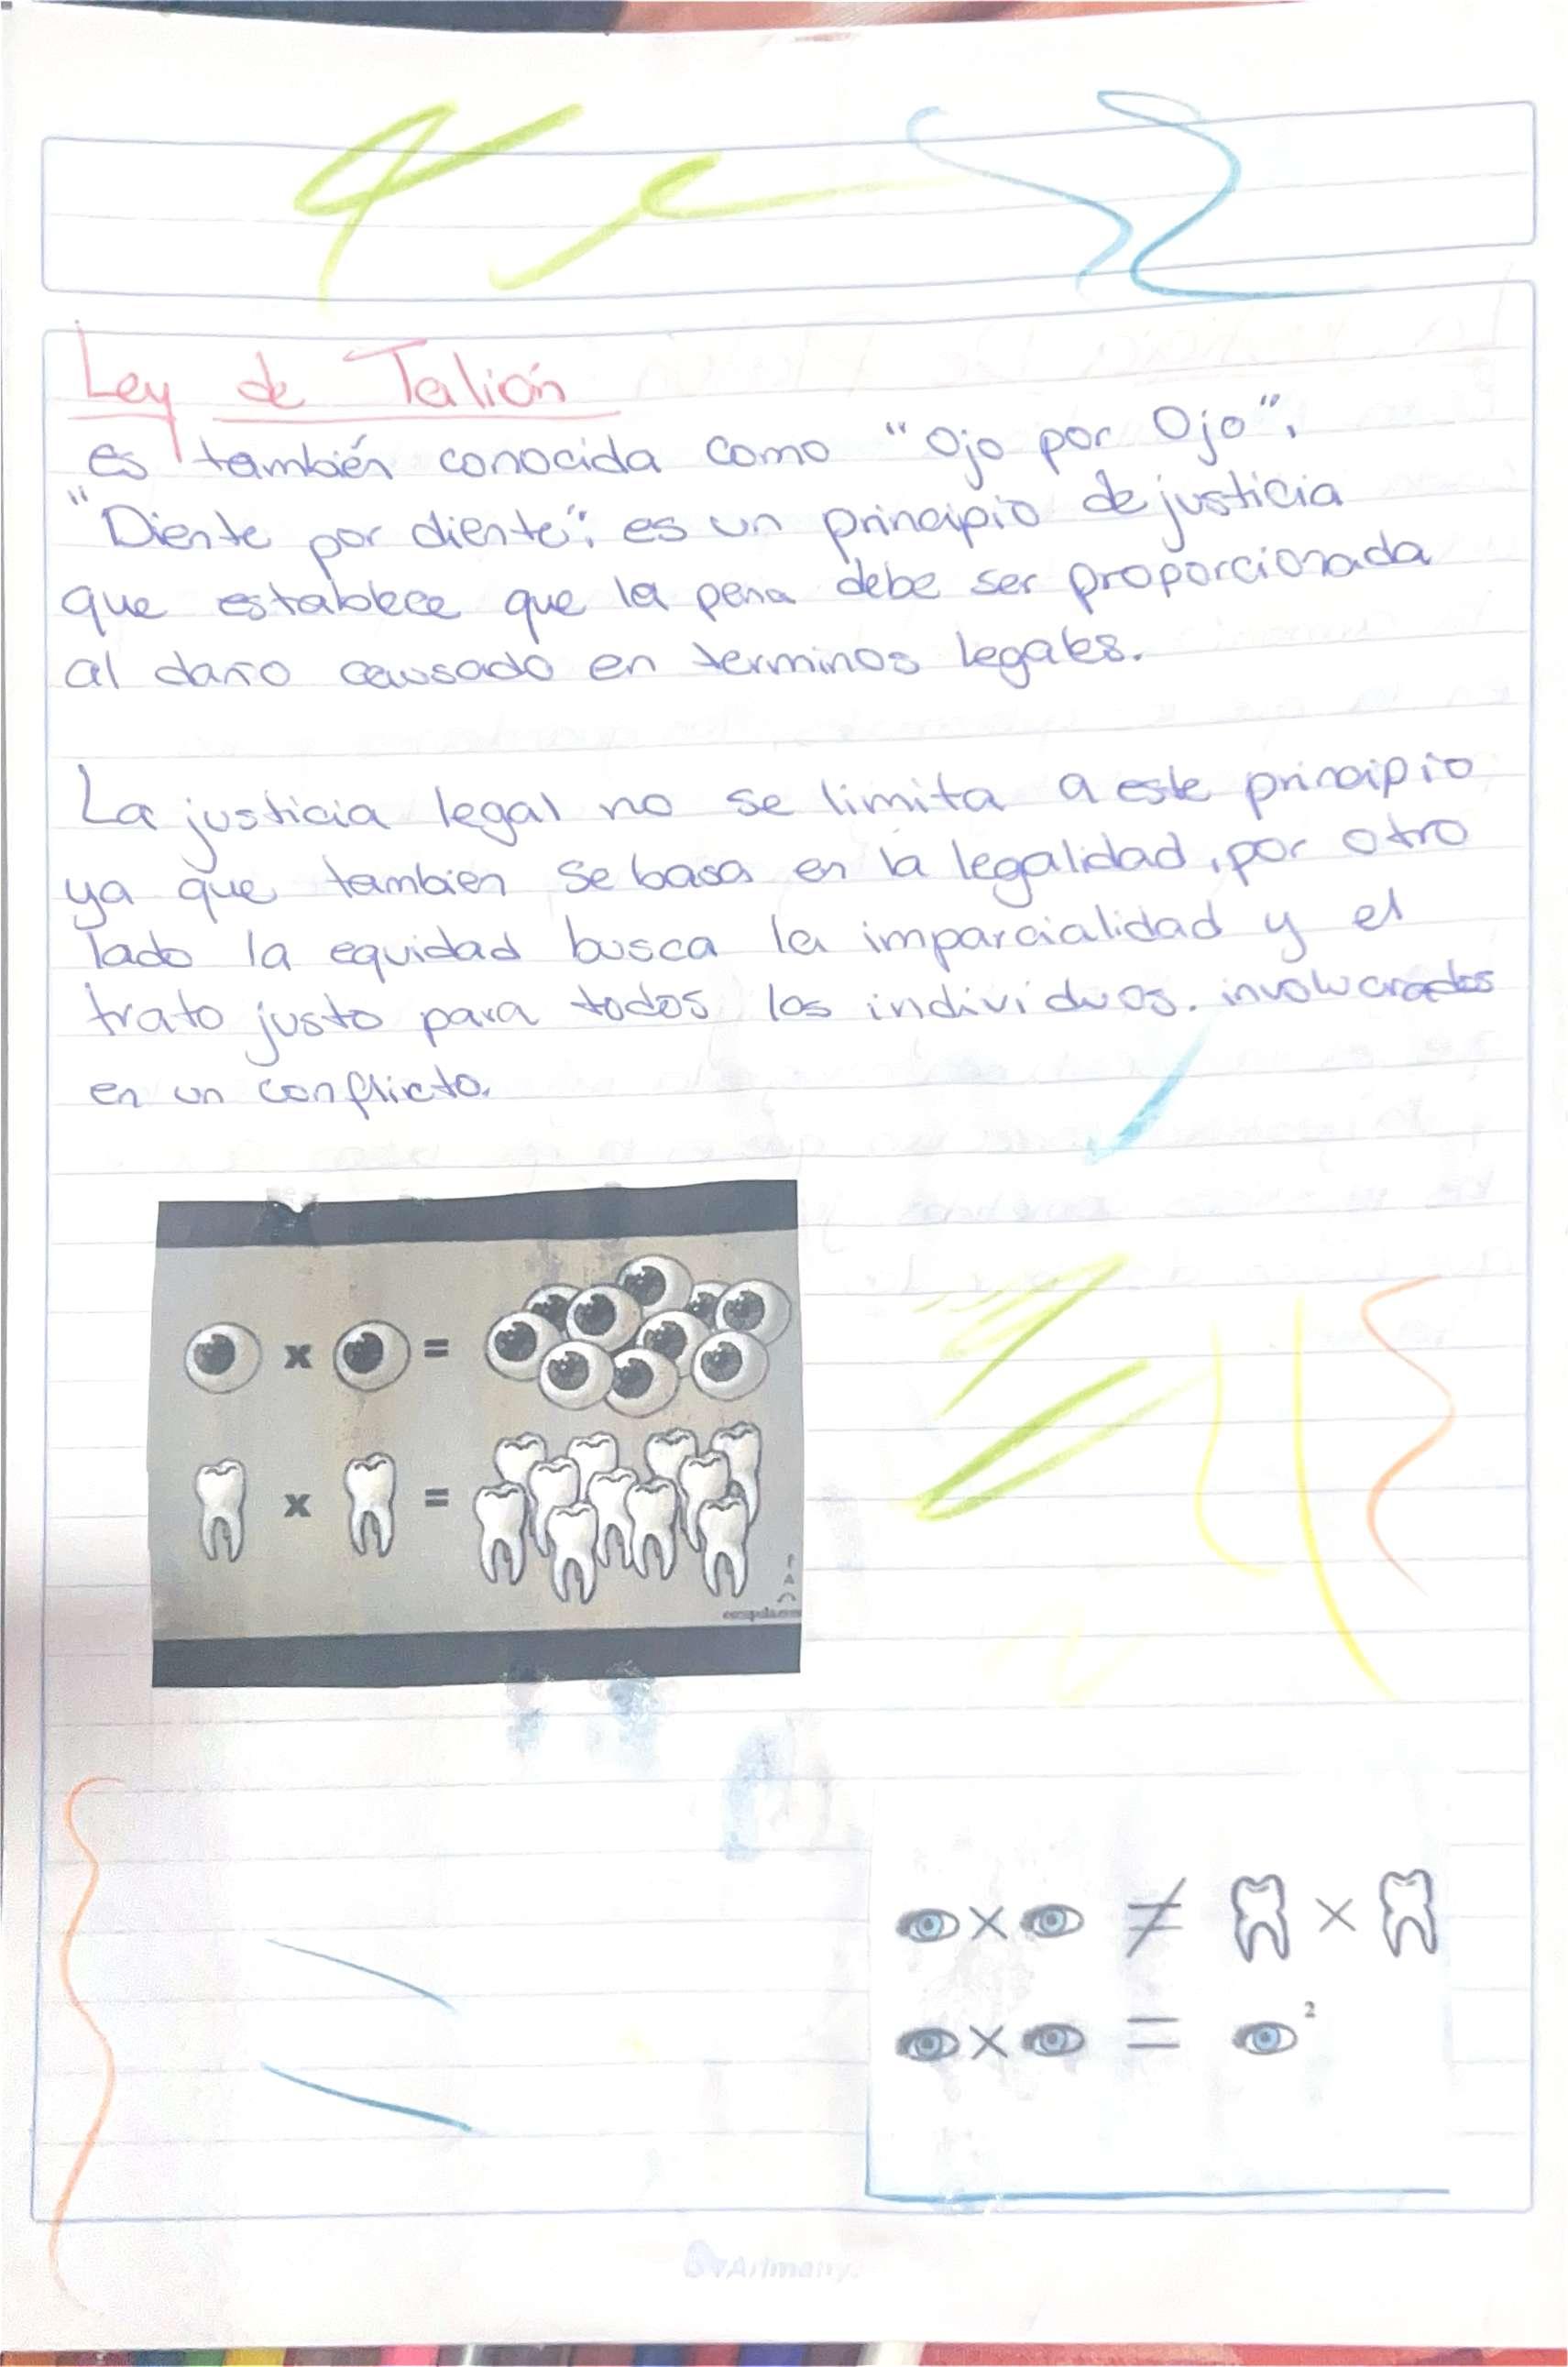 Ley de Talión
es también conocida como "Ojo por Ojo",
"Diente por diente"; es un principio de justicia
que establece que la pena debe ser proporcionada
al daño causado en terminos legales.
La justicia legal no se limita a este principio
ya que tambien se basa en la legalidad, por otro
lado la equidad busca la imparcialidad y el
trato justo para todos los individuos. involucrados
en un conflicto.
x =
x =
x ≠ x
x = 2
Arimany